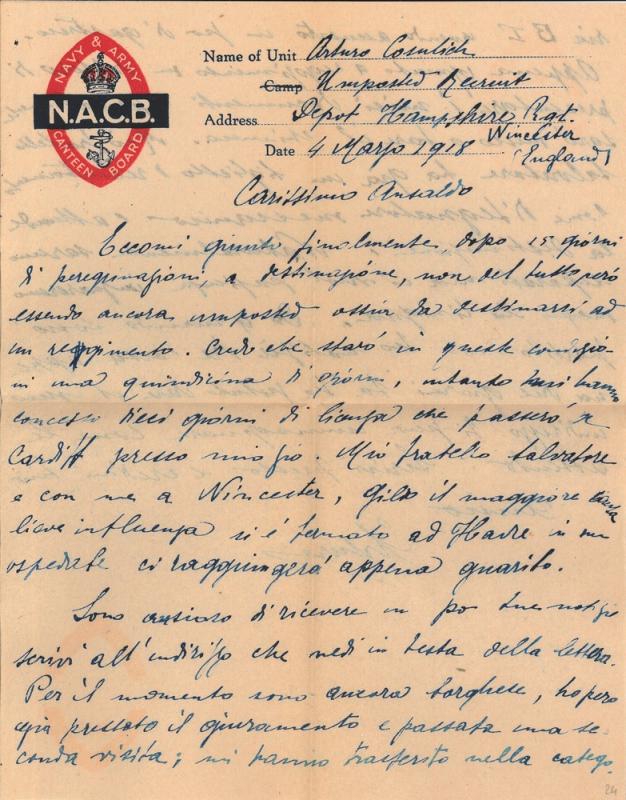 NAVY & ARMY
N.A.C.B.
CANTEEN BOARD
Name of Unit Arturo Cosulich
Camp Unposted Recruit
Address Depot Hampshire Rgt.
Wincester
Date 4 Marzo 1918 (England)
Carissimo Ansaldo
Eccomi giunto finalmente, dopo 15 giorni
di peregrinazioni, a destinazione, non del tutto però
essendo ancora unposted ossia da destinarsi ad
un reggimento. Credo che starò in queste condizio-
ni una quindicina di giorni, intanto mi hanno
concesso dieci giorni di licenza che passerò a
Cardiff presso mio zio. Mio fratello Salvatore
è con me a Wincester, Gildo il maggiore causa
lieve influenza si è fermato ad Havre in un
ospedale ci raggiungerà appena guarito.
Sono ansioso di ricevere un po' tue notizie
scrivi all'indirizzo che vedi in testa della lettera.
Per il momento sono ancora borghese, ho però
già prestato il giuramento e passata una se-
conda visita; mi hanno trasferito nella catego-
24